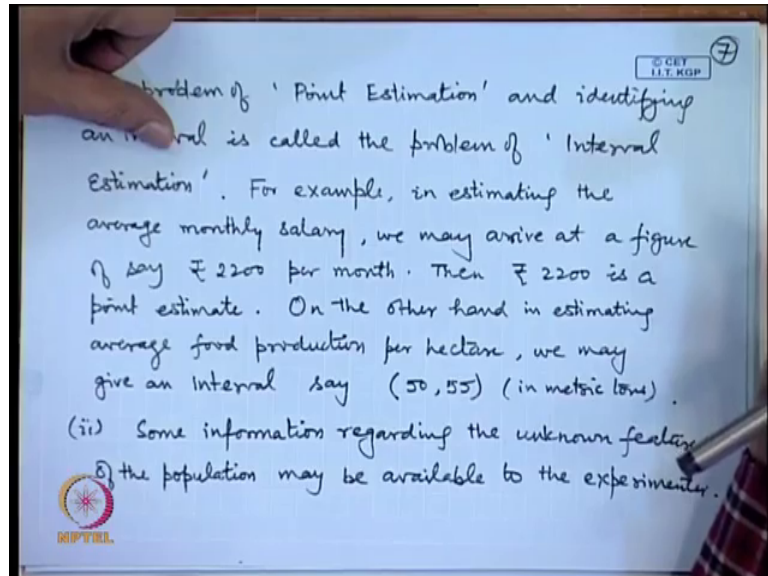 © CET
I.I.T. KGP
7
problem of 'Point Estimation' and identifying
an is called the problem of 'Interval
Estimation'. For example, in estimating the
average monthly salary, we may arrive at a figure
of say ₹ 2200 per month. Then ₹ 2200 is a
point estimate. On the other hand in estimating
average food production per hectare, we may
give an interval say (50, 55) (in metric tons).
(ii) Some information regarding the unknown feature
of the population may be available to the experimenter.
NPTEL